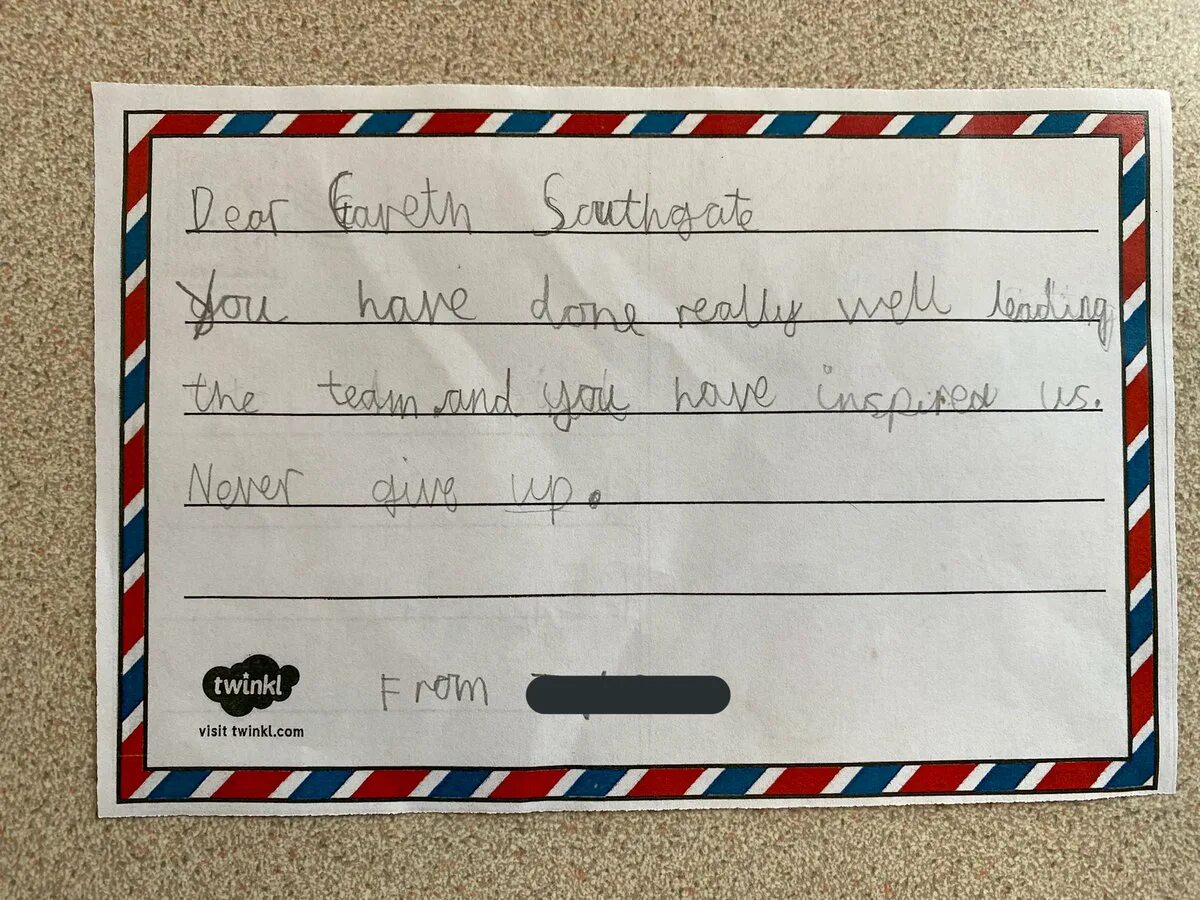 Dear Gareth Southgate
You have done really well leading
the team and you have inspired us.
Never give up.
From
twinkl
visit twinkl.com